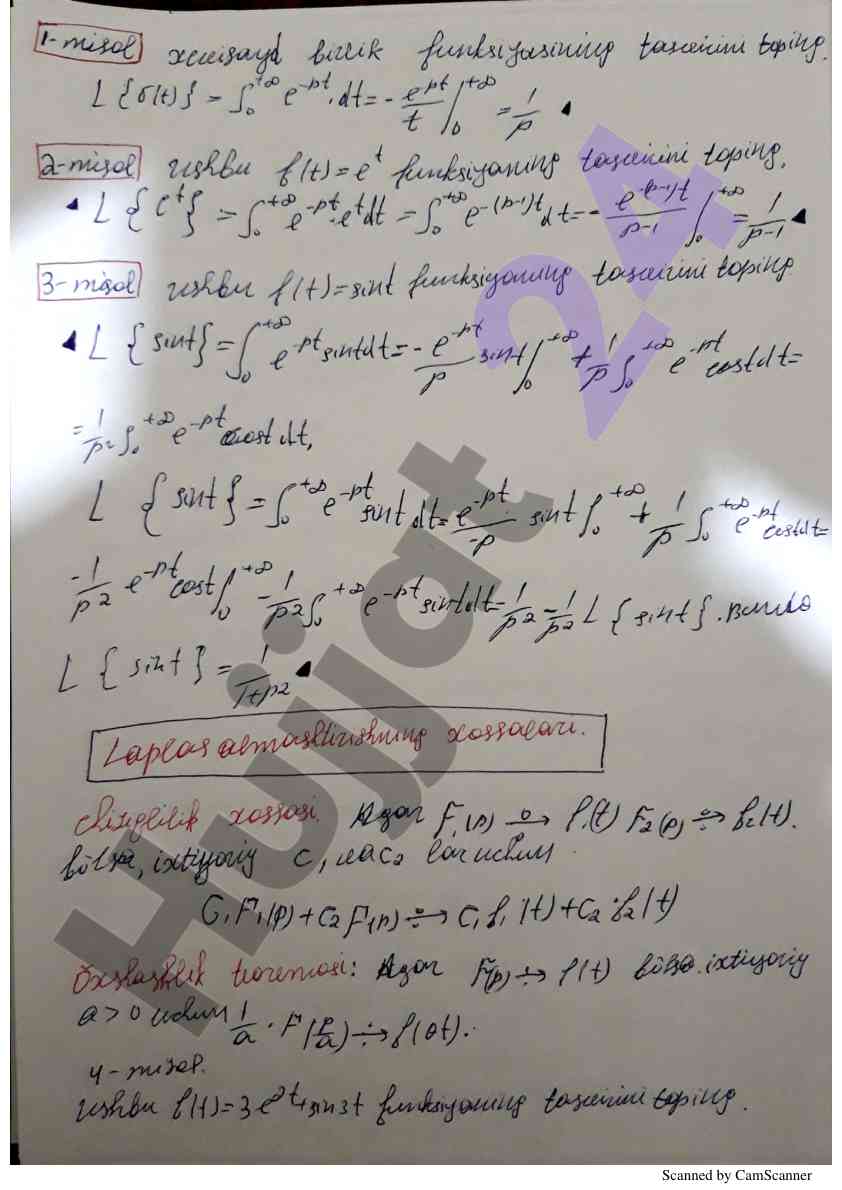 1-misol xevisayd birlik funksiyasining tasvirini toping.
L{σ(t)} = ∫₀^{+∞} e^{-pt}·dt = - e^{pt}/t |₀^{+∞} = 1/p ▲
2-misol ushbu f(t)=e^t funksiyaning tasvirini toping.
◄ L{e^t} = ∫₀^{+∞} e^{-pt}·e^t dt = ∫₀^{+∞} e^{-(p-1)t} dt = - e^{-(p-1)t}/(p-1) |₀^{+∞} = 1/(p-1) ▲
3-misol ushbu f(t)=sint funksiyaning tasvirini toping
◄ L{sint} = ∫₀^{+∞} e^{-pt} sint dt = - e^{-pt}/p sint |₀^{+∞} + 1/p ∫₀^{+∞} e^{-pt} cost dt =
= 1/p ∫₀^{+∞} e^{-pt} cost dt,
L {sint} = ∫₀^{+∞} e^{-pt} sint dt = e^{-pt}/-p sint |₀^{+∞} + 1/p ∫₀^{+∞} e^{-pt} cost dt =
-1/p² e^{-pt} cost |₀^{+∞} - 1/p² ∫₀^{+∞} e^{-pt} sint dt = 1/p² - 1/p² L{sint}.
L {sint} = 1/(1+p²) ▲
Laplas almashtirishning xossalari.
chiziqlilik xossasi. Agar F₁(p) → f₁(t) F₂(p) → f₂(t).
bo'lsa, ixtiyoriy c₁ va c₂ lar uchun
C₁F₁(p)+C₂F₁(p) → C₁f₁(t)+C₂·f₂(t)
O'xshashlik teoremasi: Agar F(p) → f(t) bo'lsa ixtiyoriy
a>0 uchun 1/a · F(p/a) → f(at).
4-misol.
ushbu funksiyaning tasvirini toping.
Hujjat 24
Scanned by CamScanner